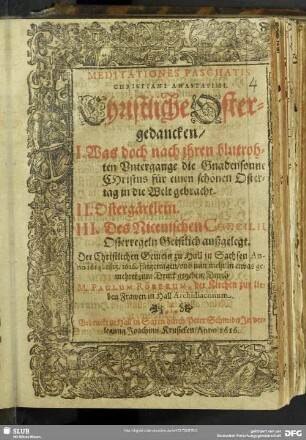 MEDITATIONES PASCHATIS
CHRISTIANI ANASTASIMI.
4
Christliche Oster-
gedancken/
I. Was doch nach jhren blutroh-
ten Vntergange die Gnadensonne
CHristus für einen schönen Oster-
tag in die Welt gebracht.
II. Ostergärtlein.
III. Des Nicenischen CONCILII
Osterregeln Geistlich außgelegt.
Der Christlichen Gemein zu Hall in Sachsen An-
no 1614. 1615. 1616. fürgetragen/ vnd nun mehr in etwas ge-
mehret zum Druck gegeben/ Durch
M. PAULUM ROBERUM, der Kirchen zur lie-
ben Frawen in Hall Archidiaconum.
Gedruckt zu Hall in Saxen durch Peter Schmidt/ In ver-
legung Joachimi Krusicken/ Anno 1616.
SLUB
Wir führen Wissen.
gefördert von der
Deutschen Forschungsgemeinschaft